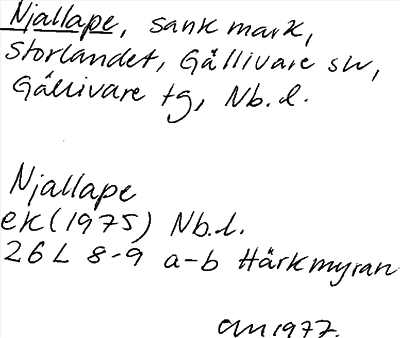 Njallape, sank mark,
Storlandet, Gällivare sn,
Gällivare tg, Nb. l.
Njallape
ek (1975) Nb. l.
26 L 8-9 a-b Härkmyran
1977.